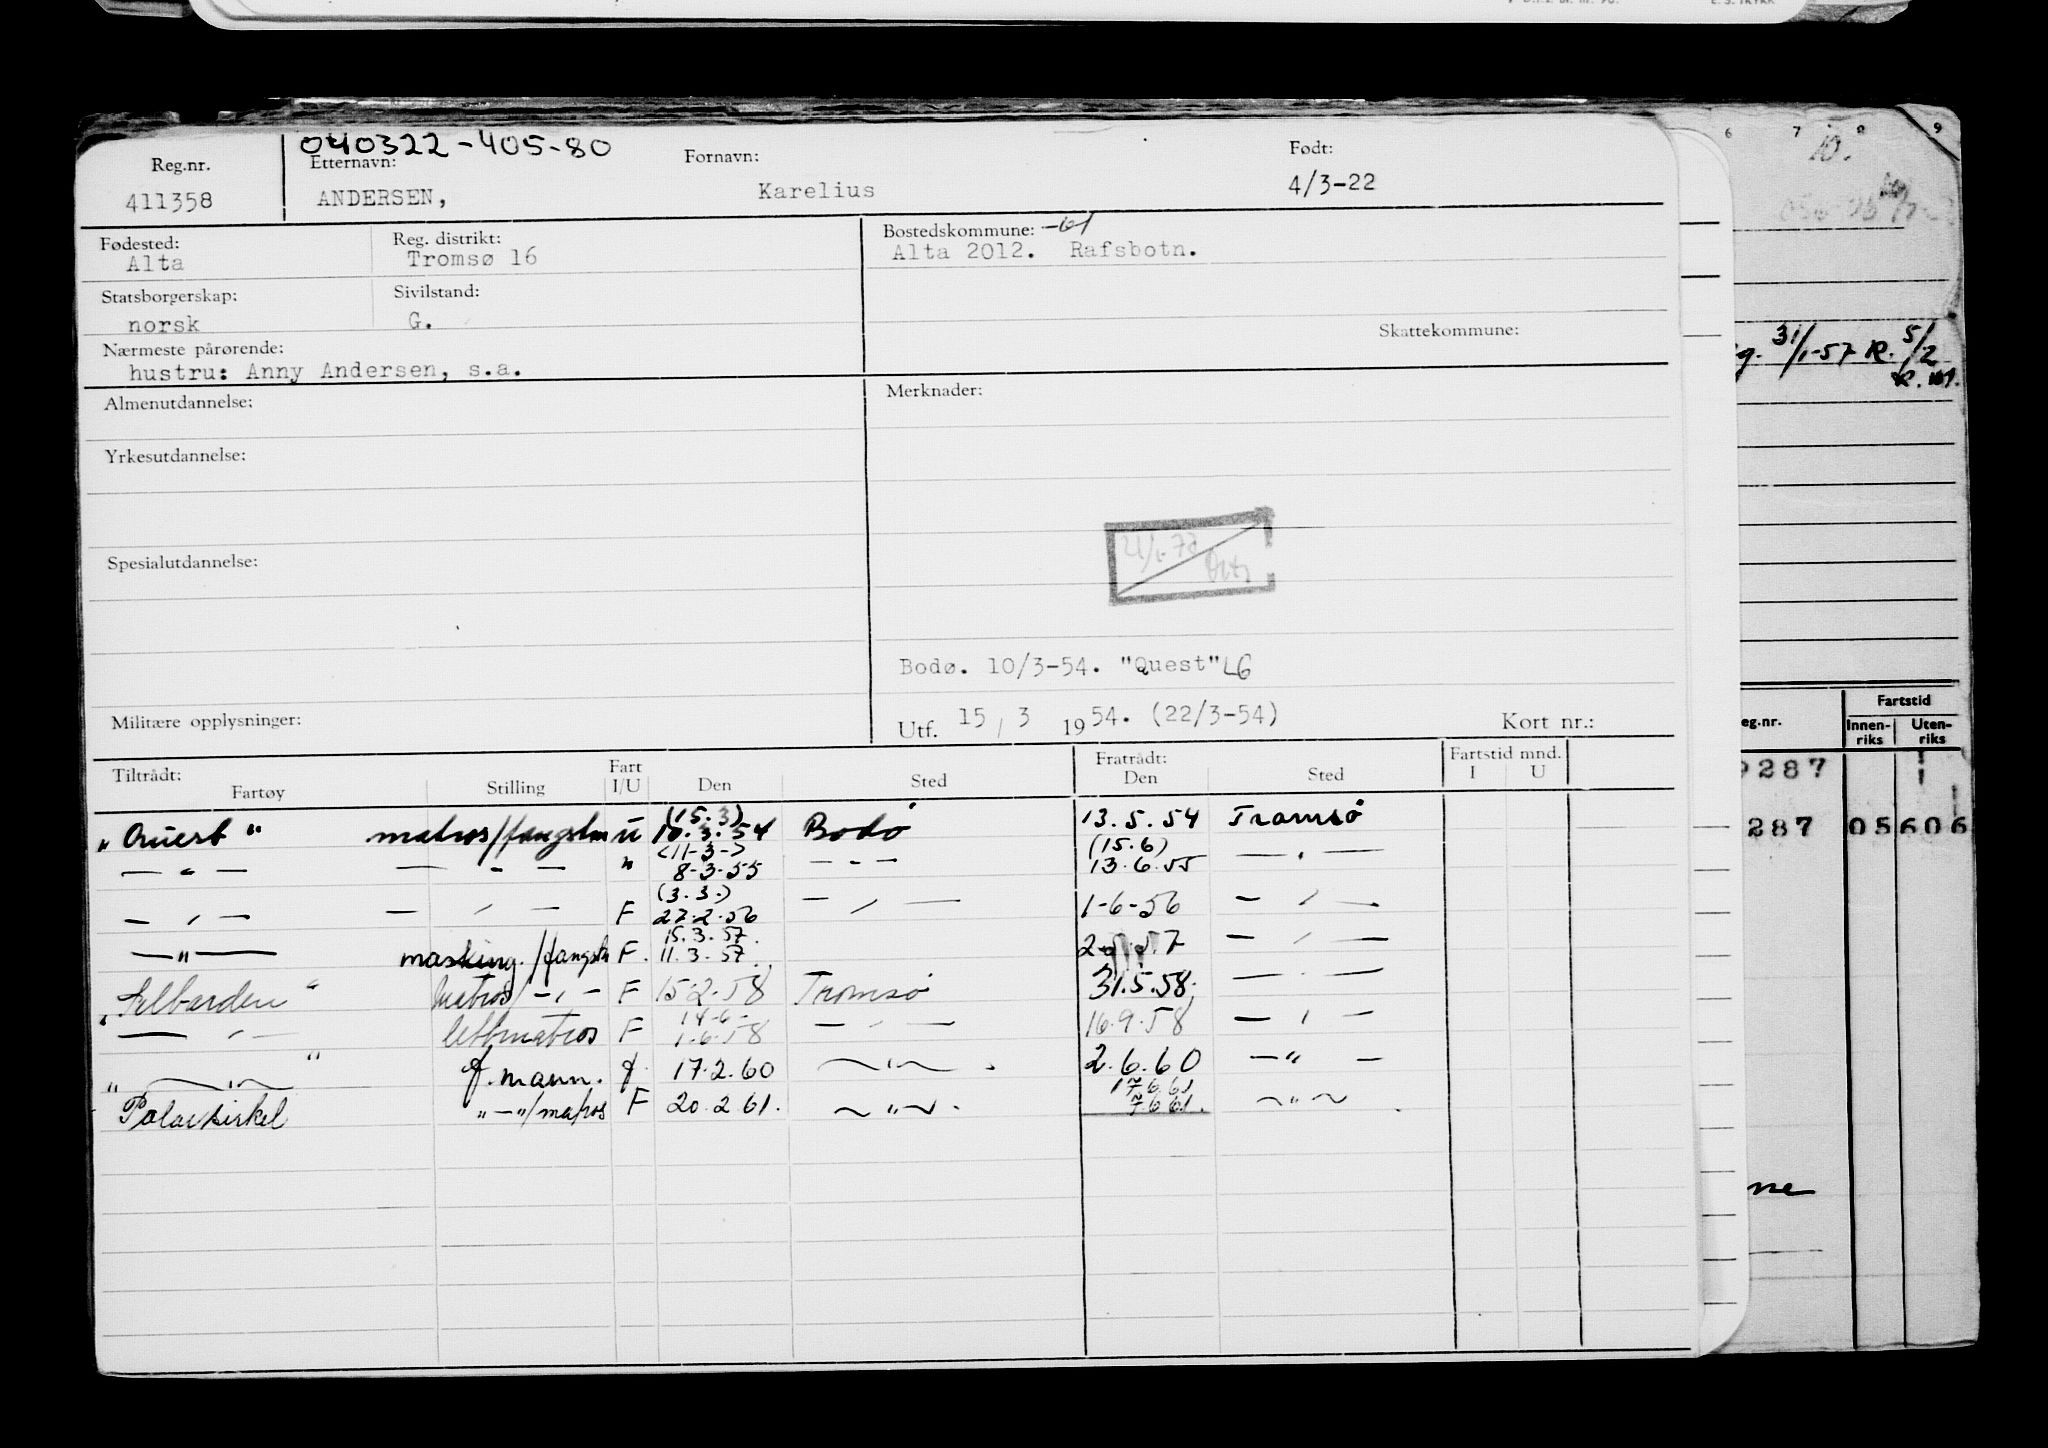 040322-405-80
Reg.nr. Etternavn: Fornavn: Født:
411358 ANDERSEN, Karelius 4/3-22
Fødested: Reg. distrikt: Bostedskommune: -61
Alta Tromsø 16 Alta 2012. Rafsbotn.
Statsborgerskap: Sivilstand:
norsk G.
Skattekommune:
Nærmeste pårørende:
hustru: Anny Andersen, s.a.
Almenutdannelse: Merknader:
Yrkesutdannelse:
Spesialutdannelse:
Bodø. 10/3-54. "Quest" LG
Militære opplysninger: Utf. 15 / 3 1954. (22/3-54) Kort nr.:
Tiltrådt: Fart Fratrådt: Fartstid mnd.
Fartøy Stilling I/U Den Sted Den Sted I U
(15.3)
"Quest" matros/fangstm U 10.3.54 Bodø 13.5.54 Tromsø
(11-3-) (15.6)
— " — — " — " 8-3-55 — " — 13.6.55 — " —
(3.3.)
— " — — " — F 27.2.56 — " — 1-6-56 — " —
15.3.57
— " — masking./fangstm F. 11.3.57 — " —
"Selbarden" Matros/ — " — F 15.2.58 Tromsø 31.5.58. — " —
14-6-
— " — lettmatros F 1.6.58 — " — 16.9.58 — " —
" — " — " f.mann. f. 17.2.60 — " — . 2.6.60 — " —
17.6.61
Polarsirkel " — "/matros F 20.2.61. — " — . 7.6.61. — " — .
6 7 8 9
10.
31/1-57 R. 5/2
Fartstid
eg.nr. Innen-riks Uten-riks
9287
287 05 606
ne